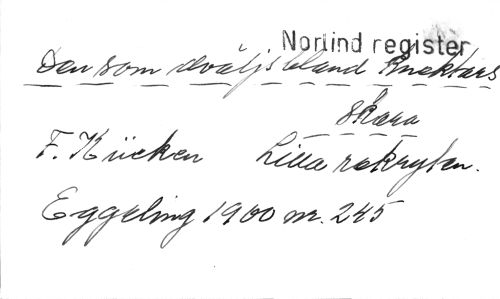 Norlind register
Den som dväljs bland knektars
skara
F. Kücken Lilla rekryten.
Eggeling 1900 nr. 245